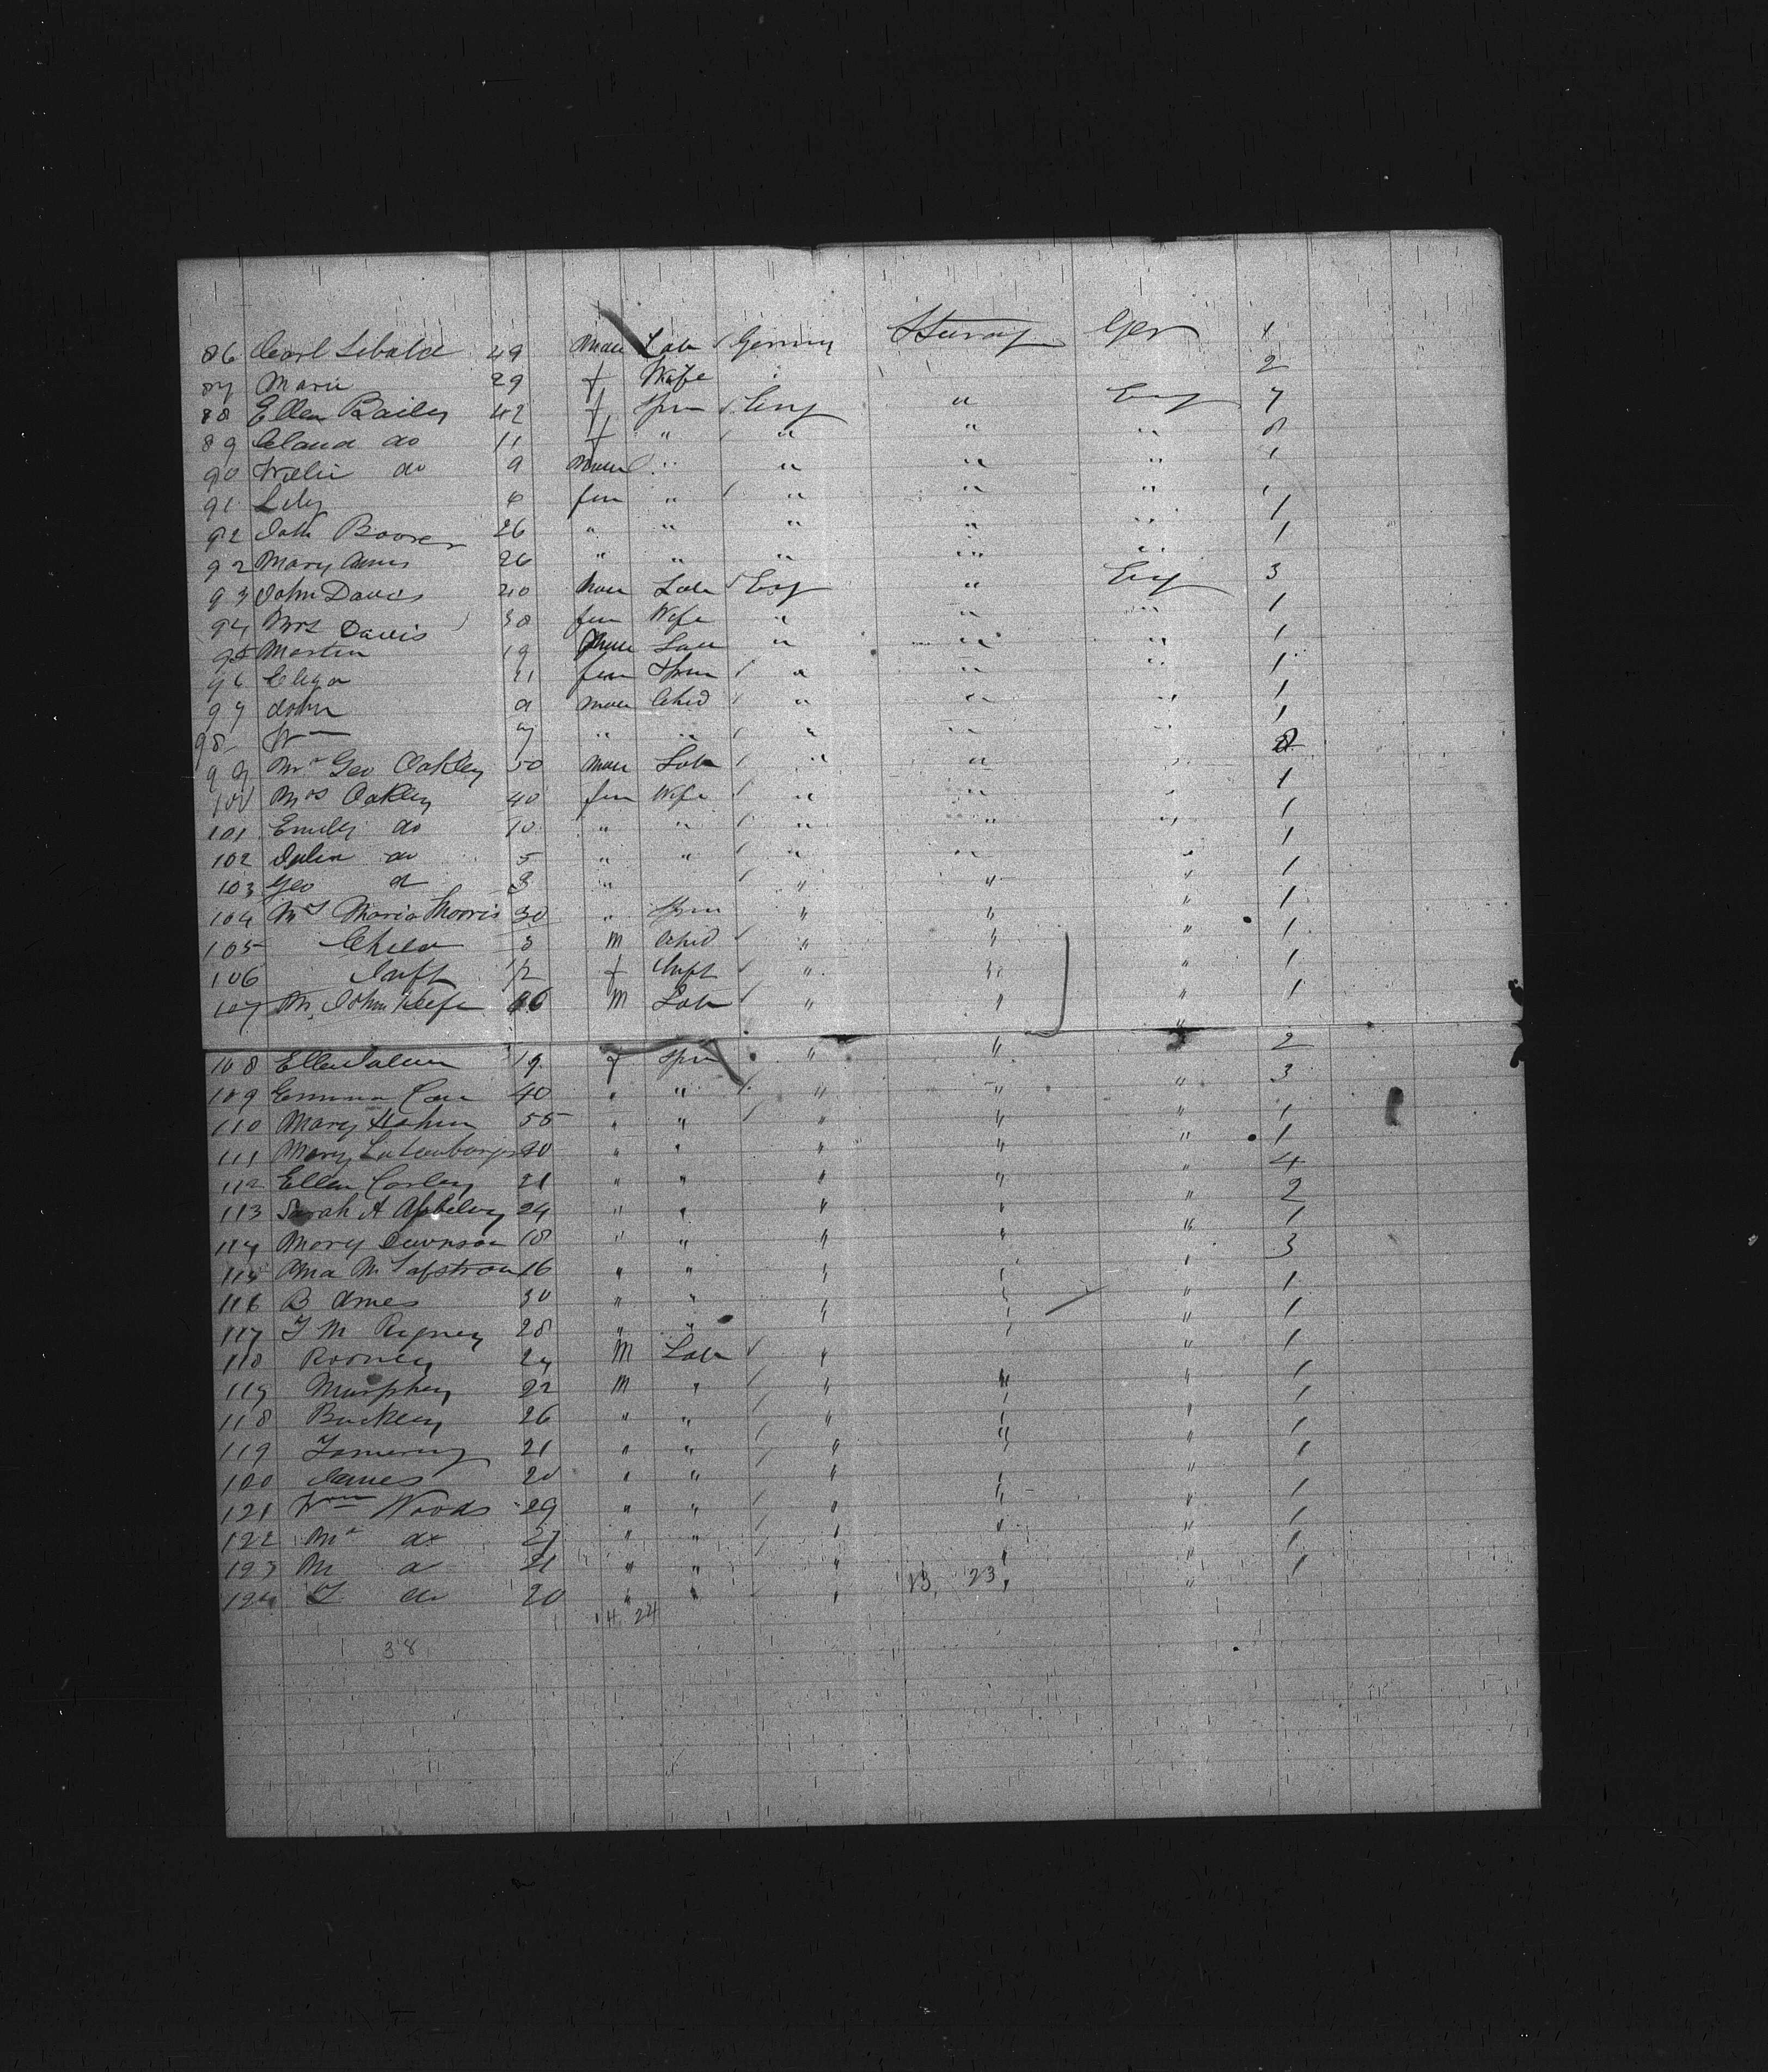 86 Carl Sebald 49 Male Lab Germny Steerag Ger 1
87 Marie 29 f Wife 2
88 Ellen Bailey 42 f Spin Eng " Eng 7
89 Claud do 11 f " " " " 8
90 Willie do 9 male " " " " 1
91 Lily 6 fem " " " " 1
92 John Booser 26 " " " " " 1
92 Mary Anns 26 " " " " " 1
93 John Davis 40 Male Lab Eng " Eng 3
94 Mrs Davis 38 fem Wife " " " 1
95 Martin 19 Male Lab " " " 1
96 Eliza 11 fem Spin " " " 1
97 John 9 male Chid " " " 1
98 Wm 7 " " " " " 1
99 Mr Geo Oakley 50 Male Lab " " " 2
100 Mrs Oakley 40 fem Wife " " 1
101 Emily do 10 " " " " " 1
102 Julia do 5 " " " " " 1
103 Geo do 3 " " " " 1
104 Mrs Maria Morris 30 " Spin " " " 1
105 Child 3 m Chid " " " 1
106 Inft 1/2 f Inft " " " 1
107 Mr. John Keefe 66 M Lab " " " 1
108 Ellen 19 f Spin " " " 2
109 Emma 40 " " " " " 3
110 Mary 55 " " " " " 1
111 Mary " " " " " 1
112 Ellen Corley 21 " " " " " 4
113 Sarah A 24 " " " " " 2
114 Mary 18 " " " " " 1
115 Ana M 16 " " " " " 3
116 B Ames 30 " " " " " 1
117 T M Rigney 28 " " " " " 1
118 Rooney 24 M Lab " " 1
119 Murphey 22 M " " " " 1
118 Buckley 26 " " " " " 1
119 21 " " " " " 1
120 James 20 " " " " " 1
121 Wm Woods 29 " " " " " 1
122 Mr do 27 " " " " " 1
123 M do 21 " " " " " 1
124 T do 20 " " " 13. 23 " 1
14 24
38